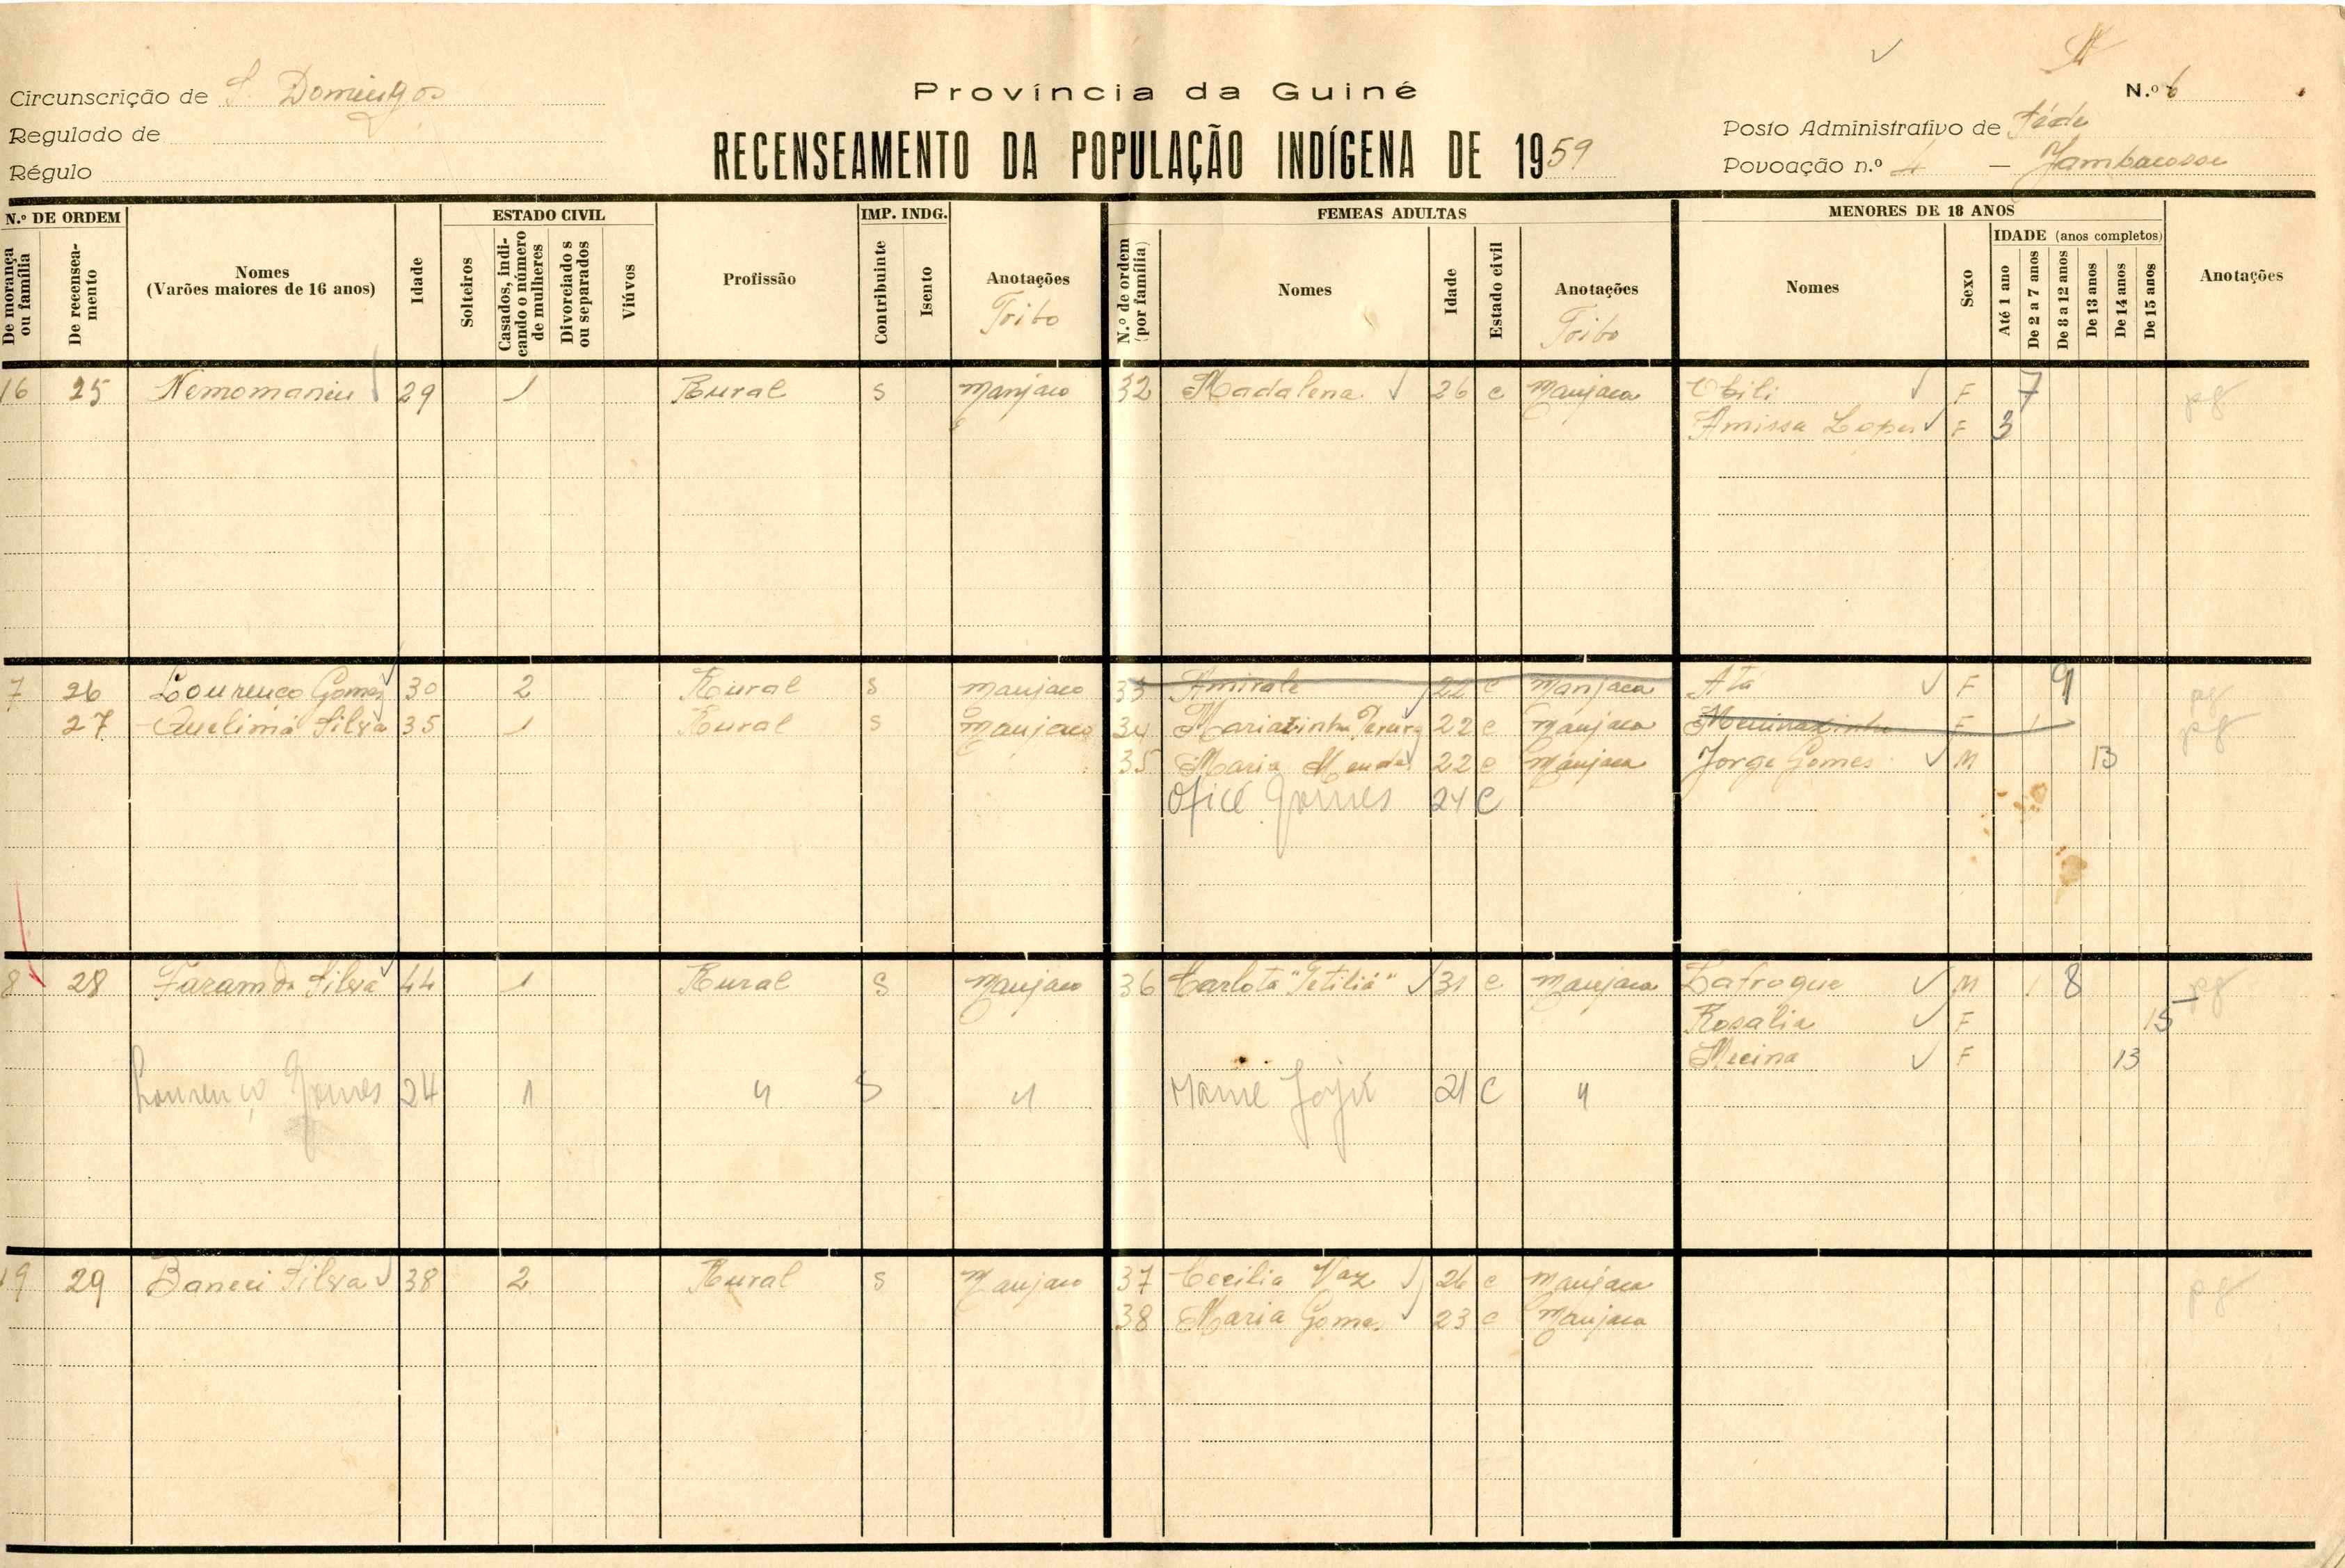 Província da Guiné
N.º 6
Circunscrição de S. Domingos
Regulado de
Régulo
RECENSEAMENTO DA POPULAÇÃO INDÍGENA DE 1959
Posto Administrativo de Séde
Povoação n.º 4 —
N.º DE ORDEM
De morança ou família
De recensea-mento
Nomes
(Varões maiores de 16 anos)
Idade
ESTADO CIVIL
Solteiros
Casados, indi-cando o número de mulheres
Divorciados ou separados
Viúvos
Profissão
IMP. INDG.
Contribuinte
Isento
Anotações
Tribo
FEMEAS ADULTAS
N.º de ordem (por família)
Nomes
Idade
Estado civil
Anotações
Tribo
MENORES DE 18 ANOS
Nomes
Sexo
IDADE (anos completos)
Até 1 ano
De 2 a 7 anos
De 8 a 12 anos
De 13 anos
De 14 anos
De 15 anos
Anotações
16 25 29 1 Rural S Manjaco 32 Madalena 26 c Manjaca Obili F 7 pg
Amissa Lopes F 3
7 26 Lourenço Gomes 30 2 Rural S Manjaco 33 Amirale 22 c Manjaca Ata F 9 pg
27 Silva 35 1 Rural S Manjaco 34 22 c Manjaca F 1 pg
35 Maria Mendes 22 c Manjaca Jorge Gomes M 13
Ofice Gomes 24 C
8 28 Silva 44 1 Rural S Manjaco 36 Carlota 31 c Manjaca Lafroque M 1 8 pg
Rosalia F 15
F 13
Lourenço Gomes 24 1 " S " 21 C "
19 29 Silva 38 2 Rural S Manjaco 37 Cecilia Vaz 26 c Manjaca pg
38 Maria Gomes 23 c Manjaca